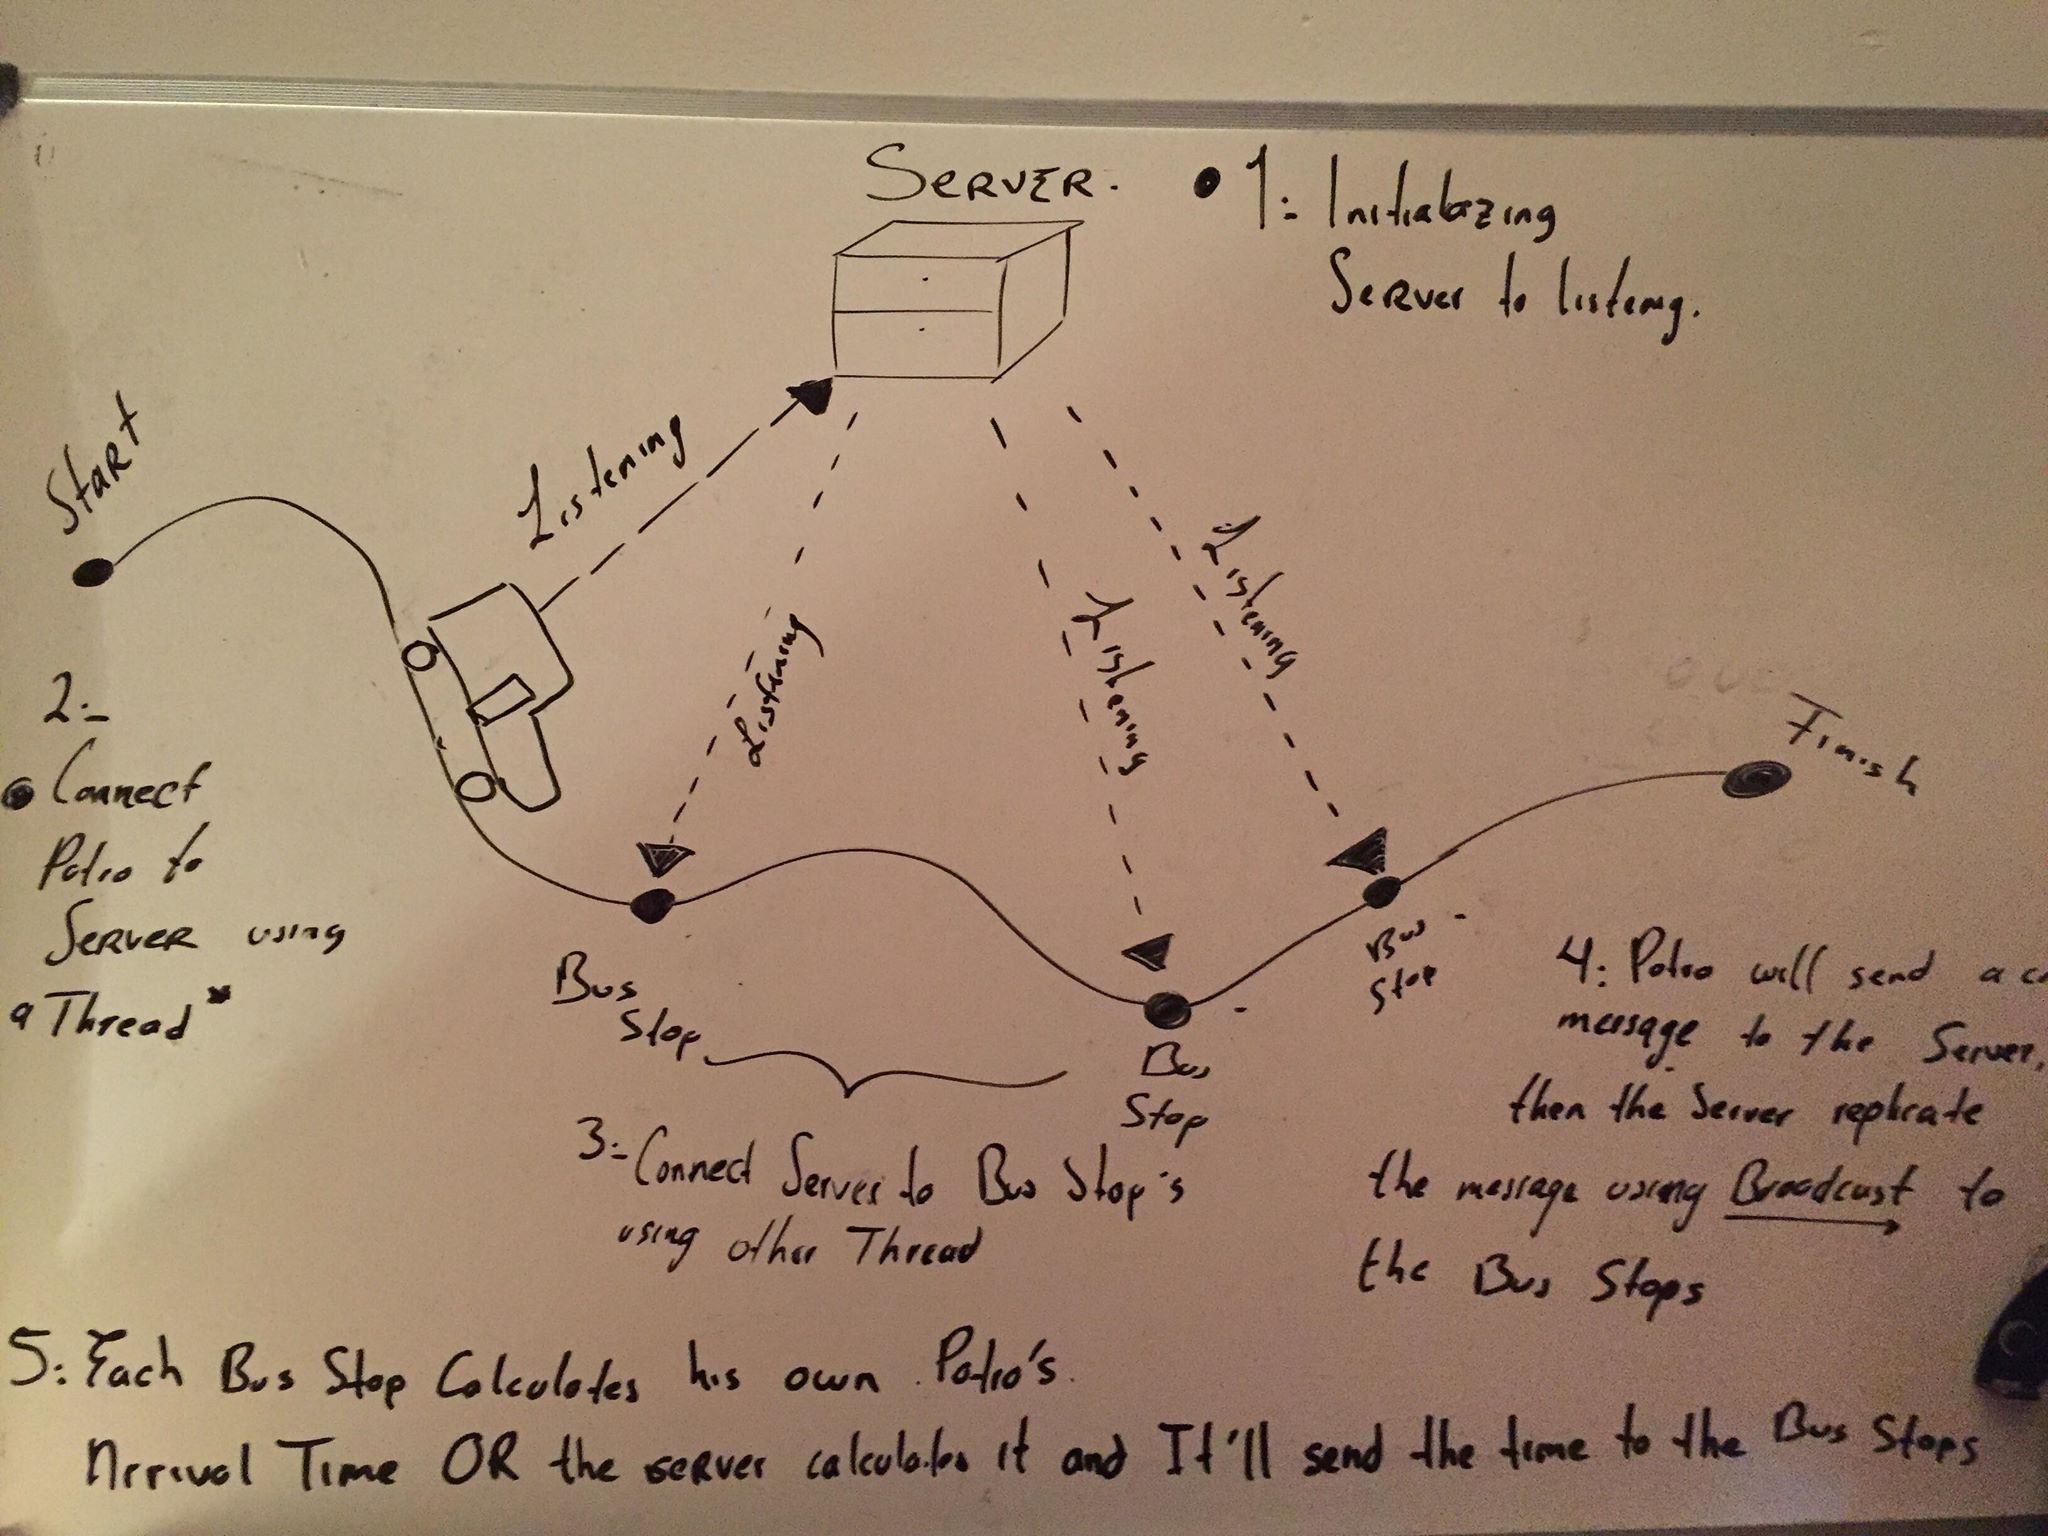 SERVER.
1:- Initialazing
Server to listeng.
Start
Listening
Listening
Listening
Listening
Finish
2:-
Connect
Patio to
Server using
a Thread*
Bus
Stop
Bus
Stop
Bus
Stop
3:- Connect Server to Bus Stop's
using other Thread
4: Patio will send a
message to the Server,
then the Server replicate
the message using Broadcast to
the Bus Stops
5: Each Bus Stop Calculates his own Patio's.
Arrival Time OR the server calculates it and It'll send the time to the Bus Stops